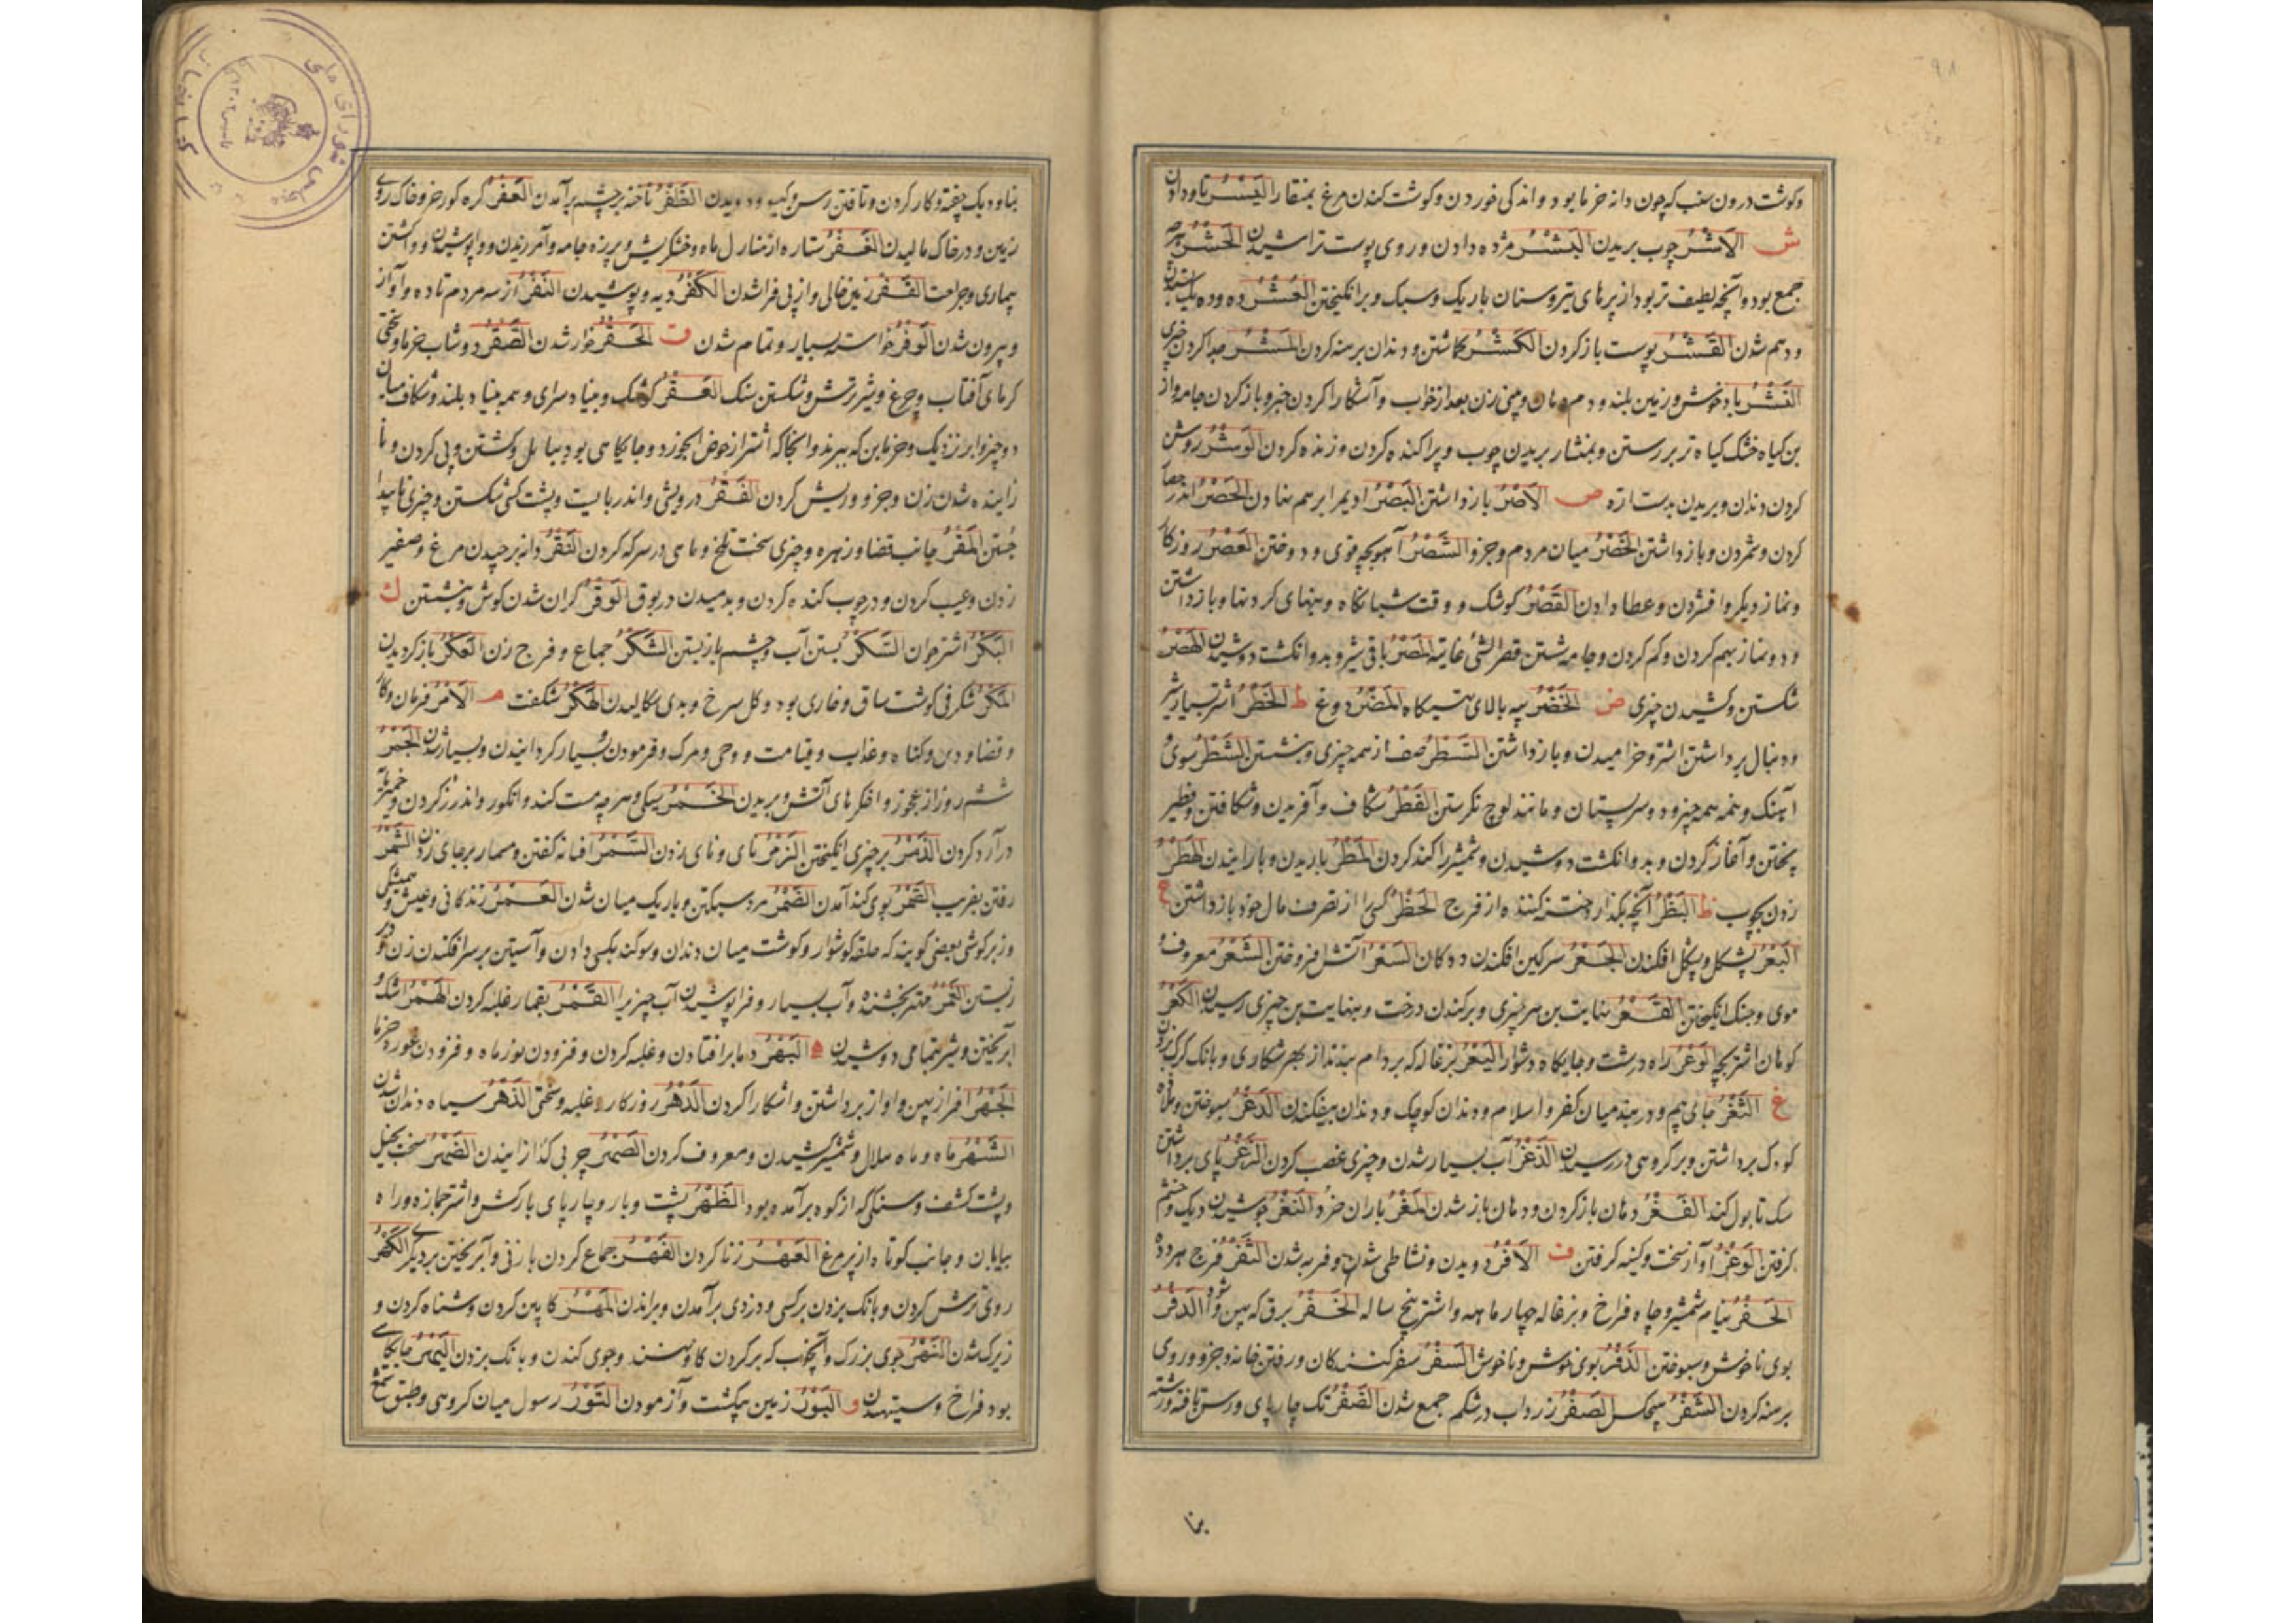 وکوشت درون سنب که چون دانه خرما بود و اندکی خوردن و کوشت کندن مرغ بمنقار الیسر تاو دادن
ش الاشر چوب بریدن البشر مژده دادن و روی پوست تراشیدن الحشر
جمع بود و آنچه لطیف تر بود از پرهای تیر و سنان باریک و سبک و برانکیختن العشر ده و ده یک ستدن
و دهم شدن القشر پوست باز کردن الکشر کاشتن و دندان برهنه کردن المشر جدا کردن چیزی
النشر باد خوش و زمین بلند و دم دهان و بینی زن بعد از خواب و آشکارا کردن خبر و باز کردن جامه و از
بن کیاه خشک کیاه تر بر رستن و بمنشار بریدن چوب و پراکنده کردن و زنده کردن الوشر روشن
کردن دندان و بریدن بدست ارّه ص الاصر باز داشتن البصر ادیم را بر هم نهادن الحصر اندر
کردن و شمردن و باز داشتن الخصر میان مردم و جزو الشصر آهو بچه قوی و دوختن العصر روزکار
و نماز دیکر و افشردن و عطا دادن القصر کوشک و وقت شبانکاه و بنهای کردنها و باز داشتن
و دو نماز بهم کردن و کم کردن و جامه شستن قصر الشی غایته المصر باقی شیر و بدو انکشت دوشیدن الهصر
شکستن و کشیدن چیزی ض الخضر سه بالای تهیکاه المضر دوغ ط الخطر اشتر بسیار شیر
و دنبال برداشتن اشتر و خرامیدن و باز داشتن السطر صف از همه چیزی و نبشتن الشطر سوی
آهنک و نیمه همه چیز و دو سر پستان و مانند لوچ نکرستن الفطر شکاف و آفریدن و شکافتن و فطیر
پختن و آغاز کردن و بدو انکشت دوشیدن و شمشیر را کند کردن المطر باریدن و بارانیدن الهطر
زدن بچوب ظ البظر آنچه بکذارد ختنه کننده از فرج الحظر کسی را از تصرف مال خود باز داشتن ع
البعر پشکل و پشکل افکندن الجعر سرکین افکندن ددکان السعر آتش افروختن الشعر معروف
موی و جنک انکیختن القعر نهایت بن هر چیزی و برکندن درخت و بنهایت بن چیزی رسیدن الکعر
کوهان اشتر بچه الوعر راه درشت و جایکاه دشوار الیعر بزغاله که بر دام بندند از بهر شکاری و بانک کردن
غ الثغر جای بیم و دربند میان کفر و اسلام و دندان کوچک و دندان بیفکندن الدغر سپوختن و ملازه
کودک برداشتن و بر کروهی در رسیدن الذغر آب بسیار شدن و چیزی غصب کردن الشغر پای برداشتن
سک تا بول کند الفغر دهان باز کردن و دهان باز شدن المغر باران خرد النغر جوشیدن دیک و خشم
کرفتن الوغر آواز سخت و کینه کرفتن ف الافر دویدن و نشاطی شدن و فربه شدن الثفر فرج هر دده
الجفر نیام شمشیر و چاه فراخ و بزغاله چهار ماهه و اشتر پنج ساله الخفر برق که پهن شود الدفر
بوی ناخوش و سپوختن الذفر بوی خوش و ناخوش السفر سفر کنندکان و رفتن خانه و جزو و روی
برهنه کردن الشفر هیچکس الصفر زرداب در شکم جمع شدن الضفر تک چارپای و رسن تافته و رشته
بنا
بناو دیک چفته و کار کردن و تافتن رسن و کیسو و دویدن الظفر ناخنه بر چشم برآمدن العفر کره کورخر و خاک روی
زمین و در خاک مالیدن الغفر ستاره از منازل ماه و خشکریش و پرزه جامه و آمرزیدن و واپوشیدن و واکشتن
بیماری و جراحت القفر زمین خالی و از پی فرا شدن الکفر دیه و پوشیدن النفر از سه مردم تا ده و آواز
و بیرون شدن الوفر خواسته بسیار و تمام شدن ق الحقر خوار شدن الصقر دوشاب خرما و سختی
کرمای آفتاب و چرغ و شیر ترش و شکستن سنک العقر کوشک و بنیاد سرای و همه بنیاد بلند و شکاف میان
دو چیز و ابر نزدیک و خرمابن که ببرند و آنجا که اشتر از حوض آبخورد و جایکاهی بود ببابل و کشتن و پی کردن و نا
زاینده شدن زن و جزو و ریش کردن الفقر درویشی و اندر بایست و پشت کسی شکستن و چیزی ناپیدا
جستن المقر جانب قضا و زهره و چیزی سخت تلخ و ماهی در سرکه کردن النقر دانه برچیدن مرغ و صفیر
زدن و عیب کردن و در چوب کنده کردن و بدمیدن در بوق الوقر کران شدن کوش و بنشستن ک
البکر اشتر جوان السکر بستن آب و چشم باز بستن الشکر جماع و فرج زن العکر باز کردیدن
المکر شکرفی کوشت ساق و خاری بود و کل سرخ و بدی سکالیدن الهکر شکفت م الامر فرمان و کار
و قضا و دی و کناه و عذاب و قیامت و وحی و مرک و فرمودن و بسیار کردانیدن و بسیار شدن الجمر
ششم روز از عجوز و افکرهای آتش و بریدن الخمر سیکی و هر چه مست کند و انکور و اندرز کردن و خمیرمایه
در آرد کردن الذمر بر چیزی انکیختن الزمر نای و نای زدن السمر افسانه کفتن و مسمار بر جای زدن الشمر
رفتن بفریب الصمر بوی کند آمدن الضمر مرد سبکتن و باریک میان شدن العمر زندکانی و عیش
و زیر کوشی بعضی کویند که حلقه کوشوار و کوشت میان دندان و سوکند بکسی دادن و آستین بر سر افکندن زن و دیر
زیستن الغمر مهتر بخشنده و آب بسیار و فرا پوشیدن آب چیزی را القمر بقمار غلبه کردن الهمر اشک و
آب ریختن و شیر بتمامی دوشیدن ه البهر دما بر افتادن و غلبه کردن و فزودن نور ماه و فزودن
الجهر افراز پهن و آواز برداشتن و اشکارا کردن الدهر روزکار و غلبه و سختی الذهر سیاه دندان شدن
الشهر ماه و ماه هلال و شمشیر کشیدن و معروف کردن الصهر چربی کدازانیدن الضهر سخت بخیل
و پشت کشف و سنکی که از کوه برآمده بود الظهر پشت و بار و چارپای بارکش و اشتر جمازه و راه
بیابان و جانب کوتاه از پر مرغ العهر زنا کردن الفهر جماع کردن با زنی و آب ریختن بر دیکری الکهر
روی ترش کردن و بانک بزدن بر کسی و دزدی برآمدن و براندن المهر کابین کردن و شناه کردن و
زیرک شدن النهر جوی بزرک و آنچوب که بر کردن کاو نهند و جوی کندن و بانک بزدن الیهر جایکاهی
بود فراخ و ستیهیدن و البور زمین بیکشت و آزمودن التور رسول میان کروهی و طبق شمع